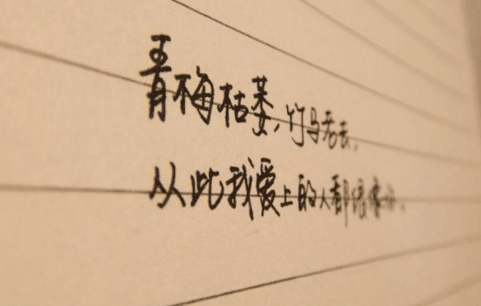 青梅枯萎，竹马老去，
从此我爱上的人都很像你。